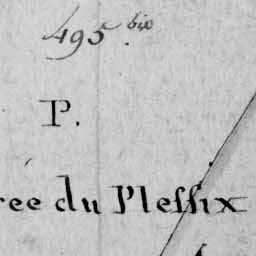 495 bis
P.
rée du Pleſſix